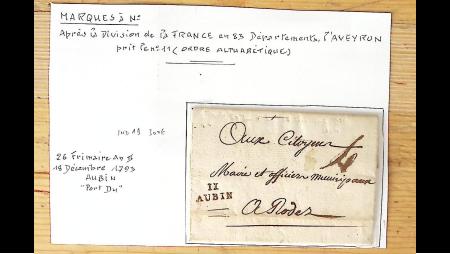 MARQUES à N°
Après la Division de la FRANCE en 83 Départements, l'AVEYRON
prit le n° 11 (ORDRE ALPHABÉTIQUE)
IND 19
26 Frimaire An
18 Décembre 1793
AUBIN
"Port Dû"
Aux Citoyens
Maire et officiers municipaux
11
AUBIN
A Rodez